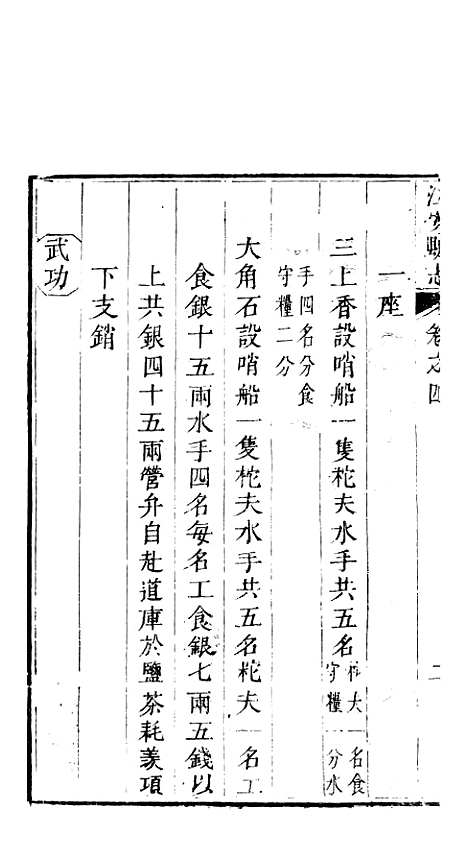 江安縣志 卷之四 二
一座
三上香設哨船一隻柁夫水手共五名柁夫一名食守糧一分水
手四名分食守糧二分
大角石設哨船一隻柁夫水手共五名柁夫一名工
食銀十五兩水手四名每名工食銀七兩五錢以
上共銀四十五兩營弁自赴道庫於鹽茶耗羨項
下支銷
武功